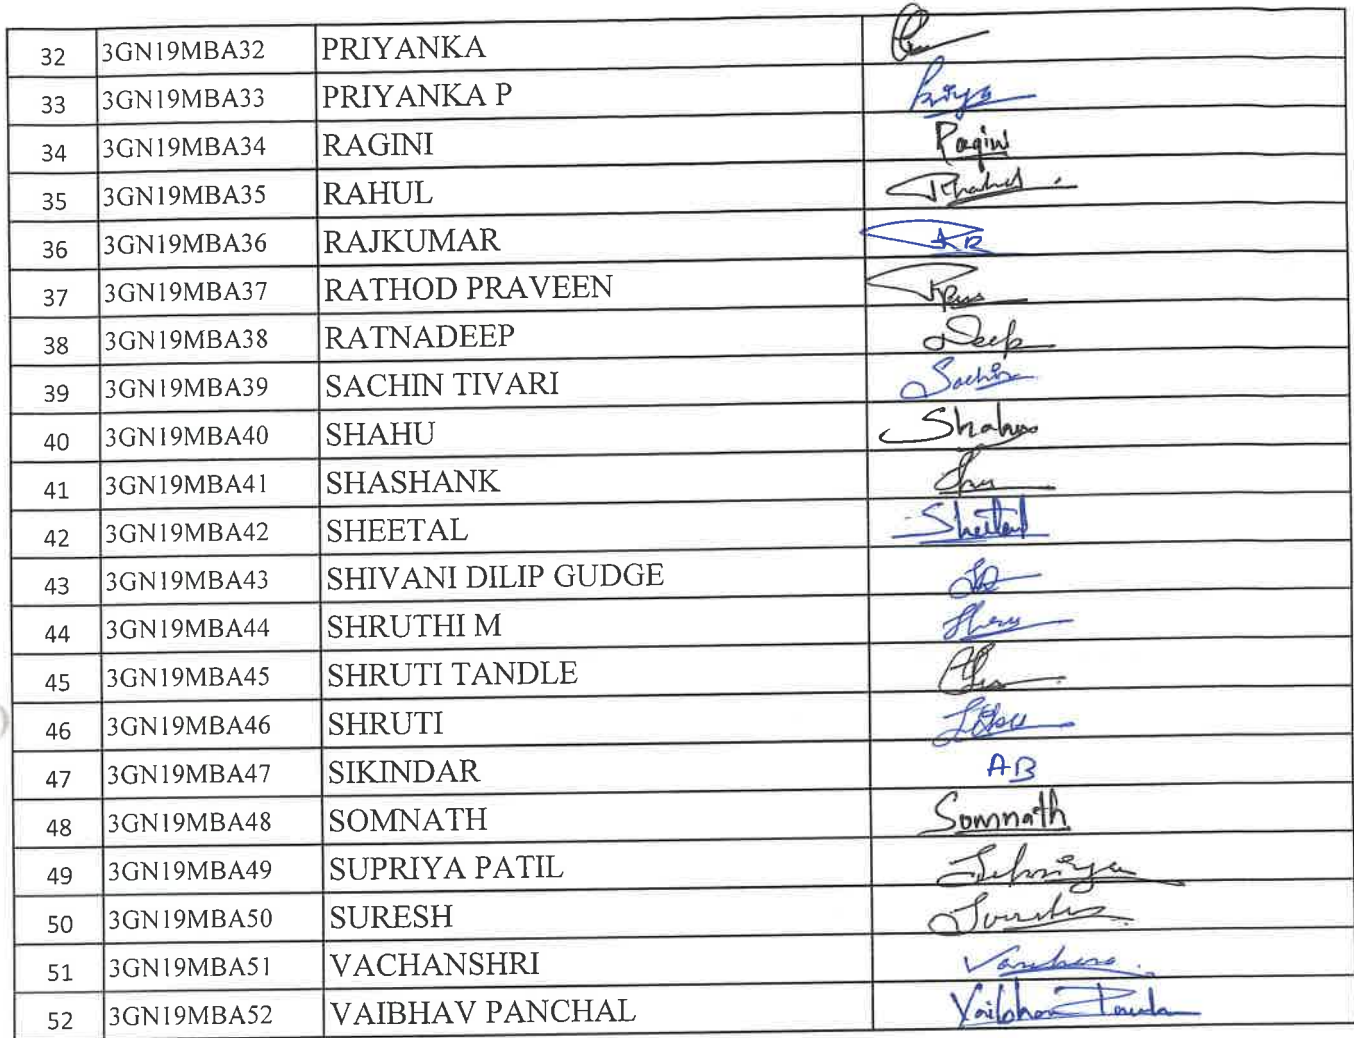 32 3GN19MBA32 PRIYANKA
33 3GN19MBA33 PRIYANKA P Priya
34 3GN19MBA34 RAGINI Ragini
35 3GN19MBA35 RAHUL Rahul
36 3GN19MBA36 RAJKUMAR
37 3GN19MBA37 RATHOD PRAVEEN
38 3GN19MBA38 RATNADEEP Deep
39 3GN19MBA39 SACHIN TIVARI Sachin
40 3GN19MBA40 SHAHU Shahu
41 3GN19MBA41 SHASHANK
42 3GN19MBA42 SHEETAL Sheetal
43 3GN19MBA43 SHIVANI DILIP GUDGE
44 3GN19MBA44 SHRUTHI M
45 3GN19MBA45 SHRUTI TANDLE
46 3GN19MBA46 SHRUTI
47 3GN19MBA47 SIKINDAR AB
48 3GN19MBA48 SOMNATH Somnath
49 3GN19MBA49 SUPRIYA PATIL
50 3GN19MBA50 SURESH
51 3GN19MBA51 VACHANSHRI
52 3GN19MBA52 VAIBHAV PANCHAL Vaibhav